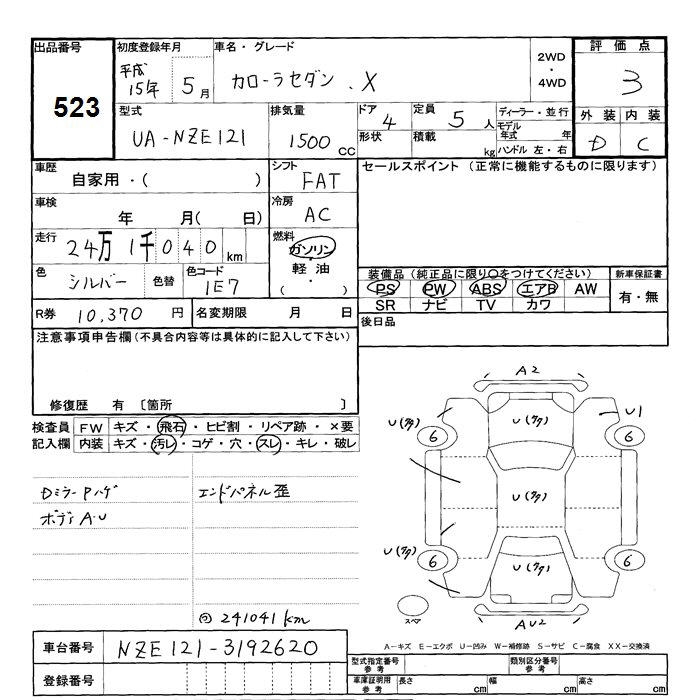 出品番号
523
初度登録年月
平成
15年 5月
車名・グレード
カローラセダン . X
2WD
・
4WD
評価点
3
型式
UA-NZE121
排気量
1500 cc
ドア
4
定員
5 人
ディーラー・並行
モデル年式 年
形状
積載 kg
ハンドル 左・右
外装 内装
D C
車歴
自家用・( )
シフト
FAT
セールスポイント (正常に機能するものに限ります)
車検
年 月( 日)
冷房
AC
走行
24万1千040km
燃料
ガソリン
・
軽油
・
( )
色
シルバー
色替
色コード
1E7
装備品 (純正品に限り○をつけてください)
新車保証書
PS PW ABS エアB AW
有・無
SR ナビ TV カワ
R券 10,370 円
名変期限 月 日
後日品
注意事項申告欄(不具合内容等は具体的に記入して下さい)
修復歴 有 〔箇所 〕
検査員 FW キズ・飛石・ヒビ割・リペア跡・×要
記入欄 内装 キズ・汚レ・コゲ・穴・スレ・キレ・破レ
DミラーPハゲ
エンドパネル歪
ボディA・U
241041km
A2
U(タク)
U(タク)
U1
6
6
U(タク)
U(タク)
6
6
U(タク)
スペア
AU2
A-キズ E-エクボ U-凹み W-補修跡 S-サビ C-腐食 XX-交換済
車台番号 NZE121-3192620
登録番号
型式指定番号
参考
類別区分番号
参考
車庫証明用
参考
長さ cm
幅 cm
高さ cm